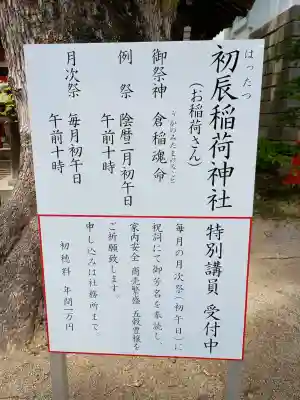 はったつ
初辰稲荷神社
(お稲荷さん)
うかのみたまのみこと
御祭神 倉稲魂命
例祭 陰暦二月初午日
午前十時
月次祭 毎月初午日
午前十時
特別講員 受付中
毎月の月次祭(初午日)に
祝詞にて御芳名を奉読し、
家内安全 商売繁盛 五穀豊穣を
ご祈願致します。
申し込みは社務所まで。
初穂料 年間一万円